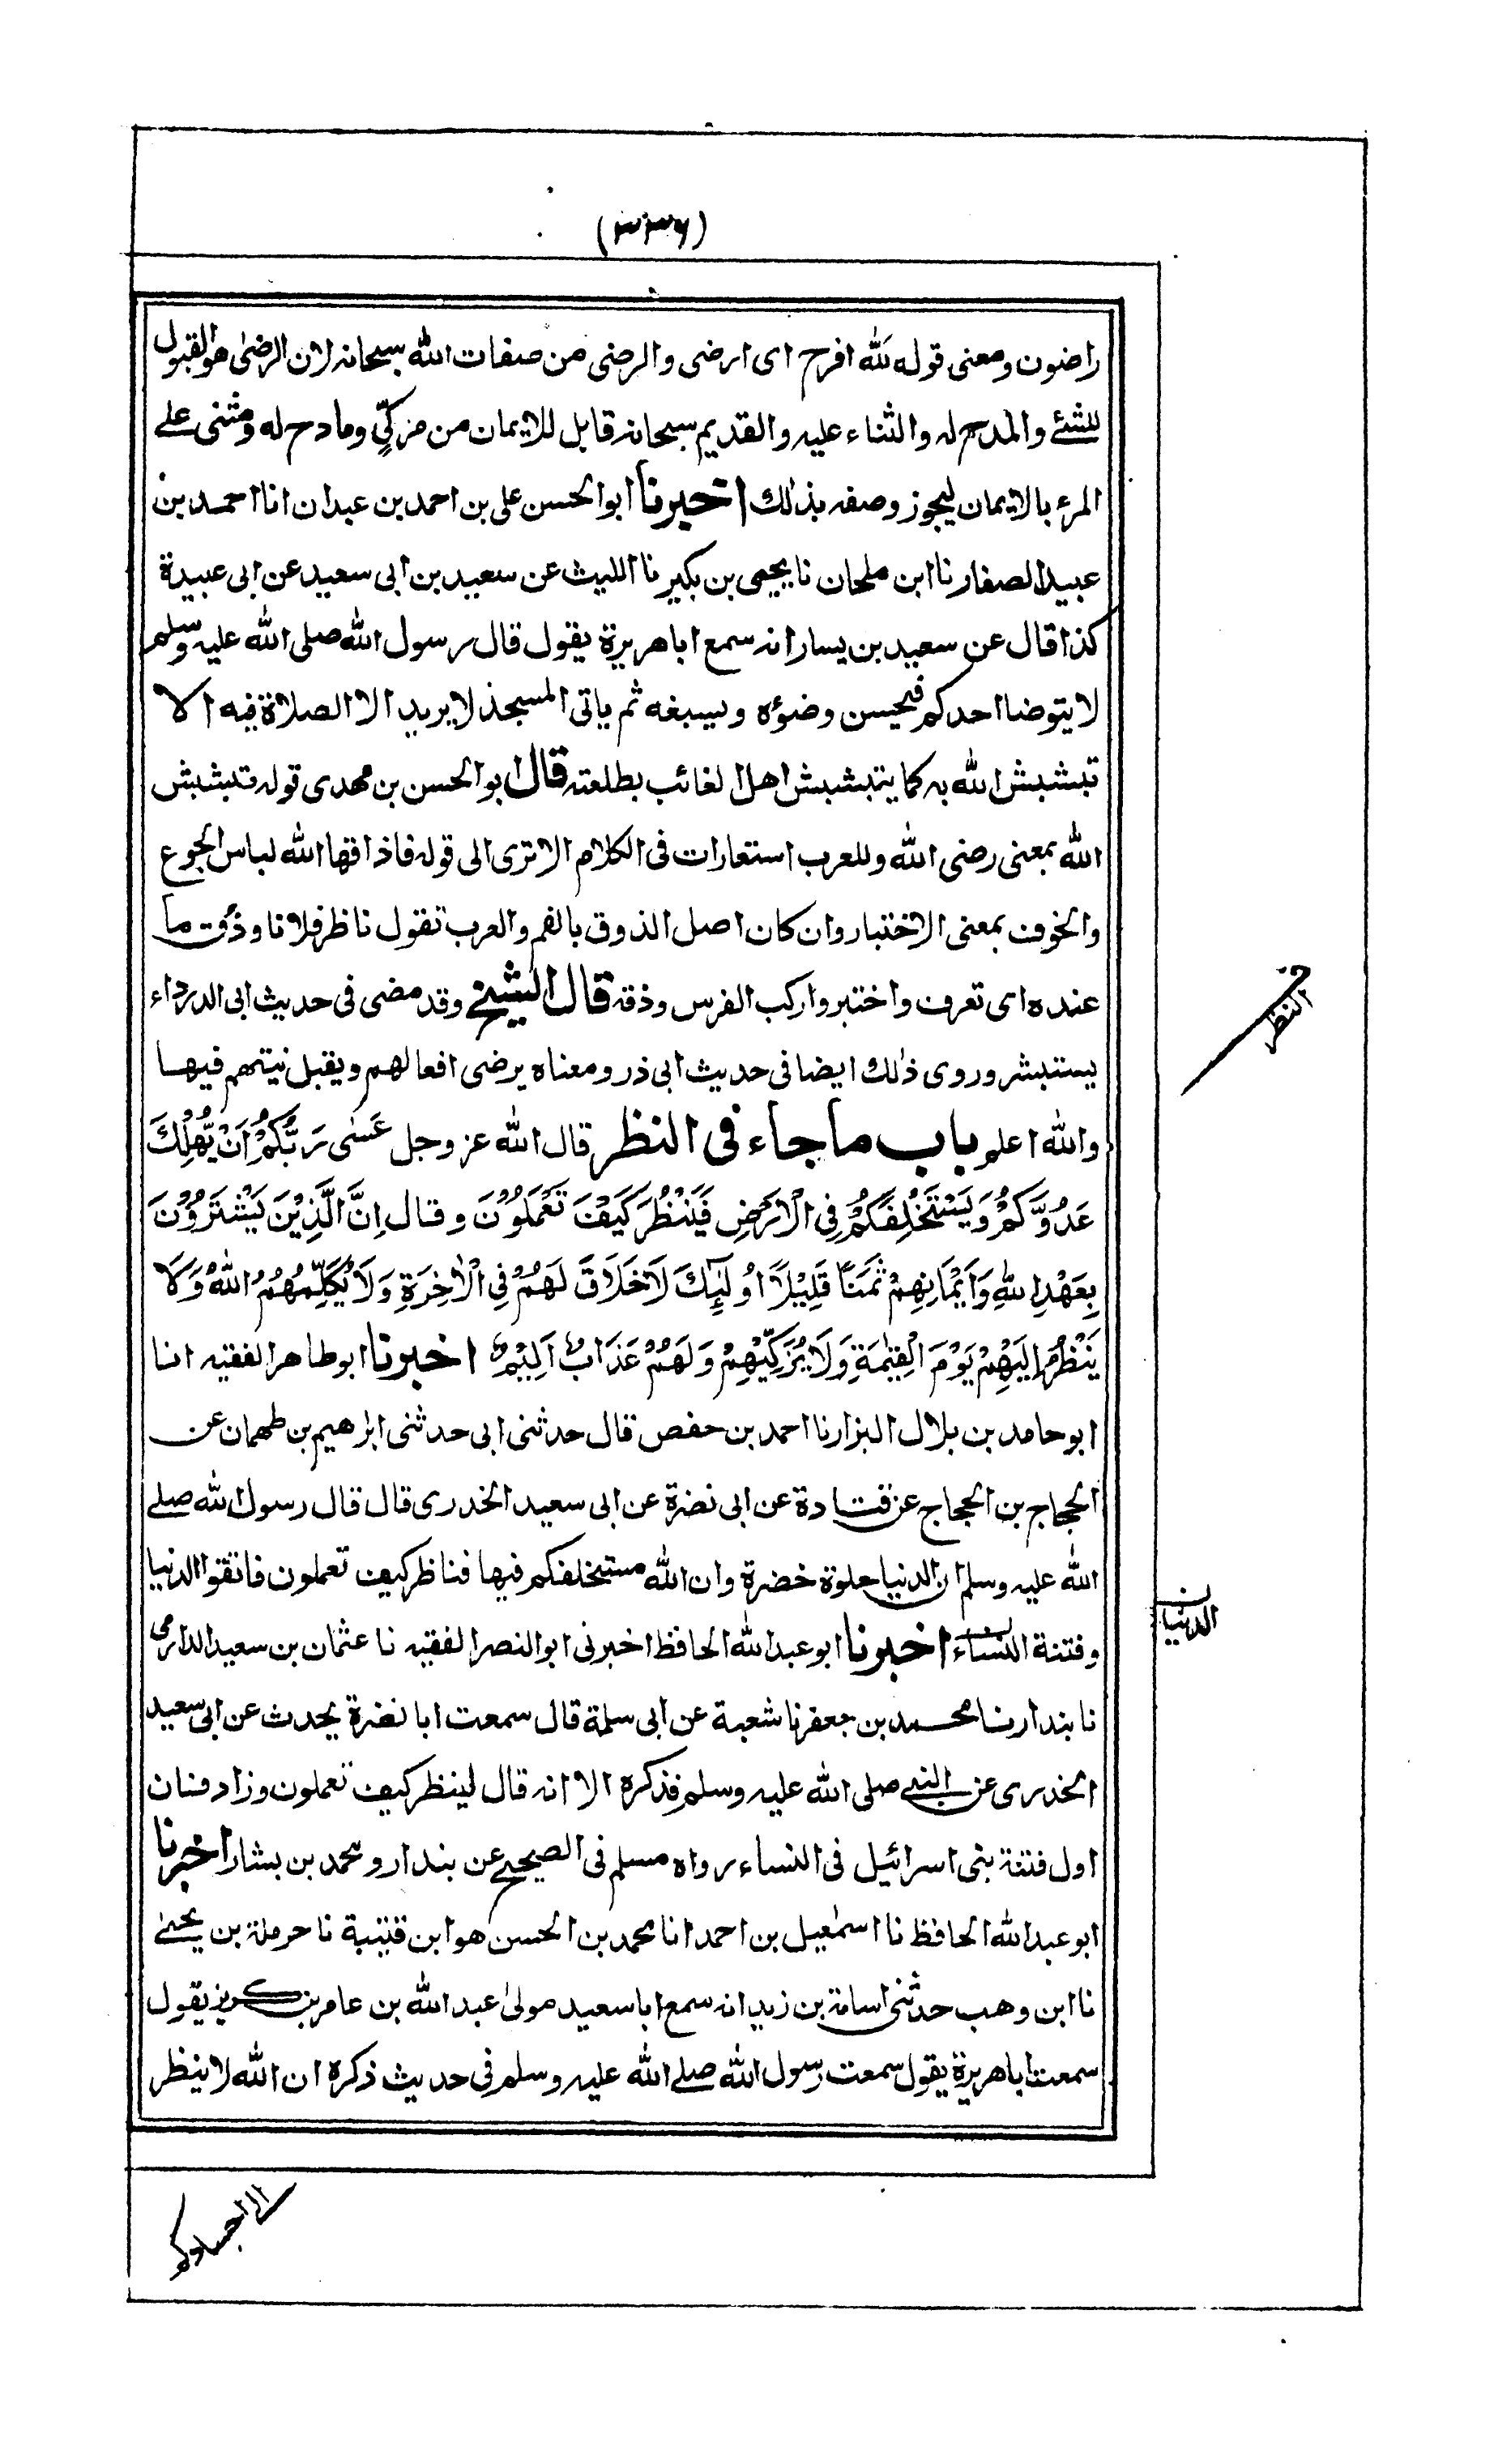 (٣٣٦)
راضون ومعنى قوله لله افرح اى ارضى والرضى من صفات الله سبحانه لان الرضى هو القبول
للشئ والمدح له والثناء عليه والقديم سبحانه قابل للايمان من مزكّي ومادح له ومثنى على
المرء بالايمان ليجوز وصفه بذلك اخبرنا ابو الحسن على بن احمد بن عبدان انا احمد بن
عبيد الصفار نا ابن ملحان نا يحيى بن بكير نا الليث عن سعيد بن ابى سعيد عن ابى عبيدة
كذا قال عن سعيد بن يسار انه سمع ابا هريرة يقول قال رسول الله صلى الله عليه وسلم
لا يتوضا احدكم فيحسن وضؤه ويسبغه ثم ياتى المسجد لا يريد الا الصلاة فيه الا
تبشبش الله به كما يتبشبش اهل الغائب بطلعته قال ابو الحسن بن مهدى قوله تبشبش
الله بمعنى رضى الله وللعرب استعارات فى الكلام الا ترى الى قوله فاذاقها الله لباس الجوع
والخوف بمعنى الاختبار وان كان اصل الذوق بالفم والعرب تقول ناظر فلانا وذُق ما
عنده اى تعرف واختبر واركب الفرس وذقه قال الشيخ وقد مضى فى حديث ابى الدرداء
يستبشر وروى ذلك ايضا فى حديث ابى ذر ومعناه يرضى افعالهم ويقبل نيتهم فيها
والله اعلم باب ما جاء فى النظر قال الله عز وجل عَسٰى رَبُّكُمْ اَنْ يُّهْلِكَ
عَدُوَّكُمْ وَيَسْتَخْلِفَكُمْ فِى الْاَرْضِ فَيَنْظُرَ كَيْفَ تَعْمَلُوْنَ وقال اِنَّ الَّذِيْنَ يَشْتَرُوْنَ
بِعَهْدِ اللهِ وَاَيْمَانِهِمْ ثَمَنًا قَلِيْلًا اُولٰئِكَ لَاخَلَاقَ لَهُمْ فِى الْاٰخِرَةِ وَلَا يُكَلِّمُهُمُ اللهُ وَلَا
يَنْظُرُ اِلَيْهِمْ يَوْمَ الْقِيٰمَةِ وَلَا يُزَكِّيْهِمْ وَلَهُمْ عَذَابٌ اَلِيْمٌ اخبرنا ابو طاهر الفقيه انا
ابو حامد بن بلال البزار نا احمد بن حفص قال حدثنى ابى حدثنى ابراهيم بن طهمان عن
الحجاج بن الحجاج عن قتادة عن ابى نضرة عن ابى سعيد الخدرى قال قال رسول الله صلى
الله عليه وسلم ان الدنيا حلوة خضرة وان الله مستخلفكم فيها فناظر كيف تعملون فاتقوا الدنيا
وفتنة النساء اخبرنا ابو عبد الله الحافظ اخبرنى ابو النصر الفقيه نا عثمان بن سعيد الدارمى
نا بندار نا محمد بن جعفر نا شعبة عن ابى سلمة قال سمعت ابا نضرة يحدث عن ابى سعيد
الخدرى عن النبى صلى الله عليه وسلم فذكره الا انه قال لينظر كيف تعملون وزاد فنان
اول فتنة بنى اسرائيل فى النساء رواه مسلم فى الصحيح عن بندار ومحمد بن بشار اخبرنا
ابو عبد الله الحافظ نا اسمٰعيل بن احمد انا محمد بن الحسن هو ابن قتيبة نا حرملة بن يحيىٰ
نا ابن وهب حدثنى اسامة بن زيد انه سمع ابا سعيد مولىٰ عبد الله بن عامر بن كريز يقول
سمعت ابا هريرة يقول سمعت رسول الله صلى الله عليه وسلم فى حديث ذكره ان الله لا ينظر
النظر
الدنيا
الى اجسادكم